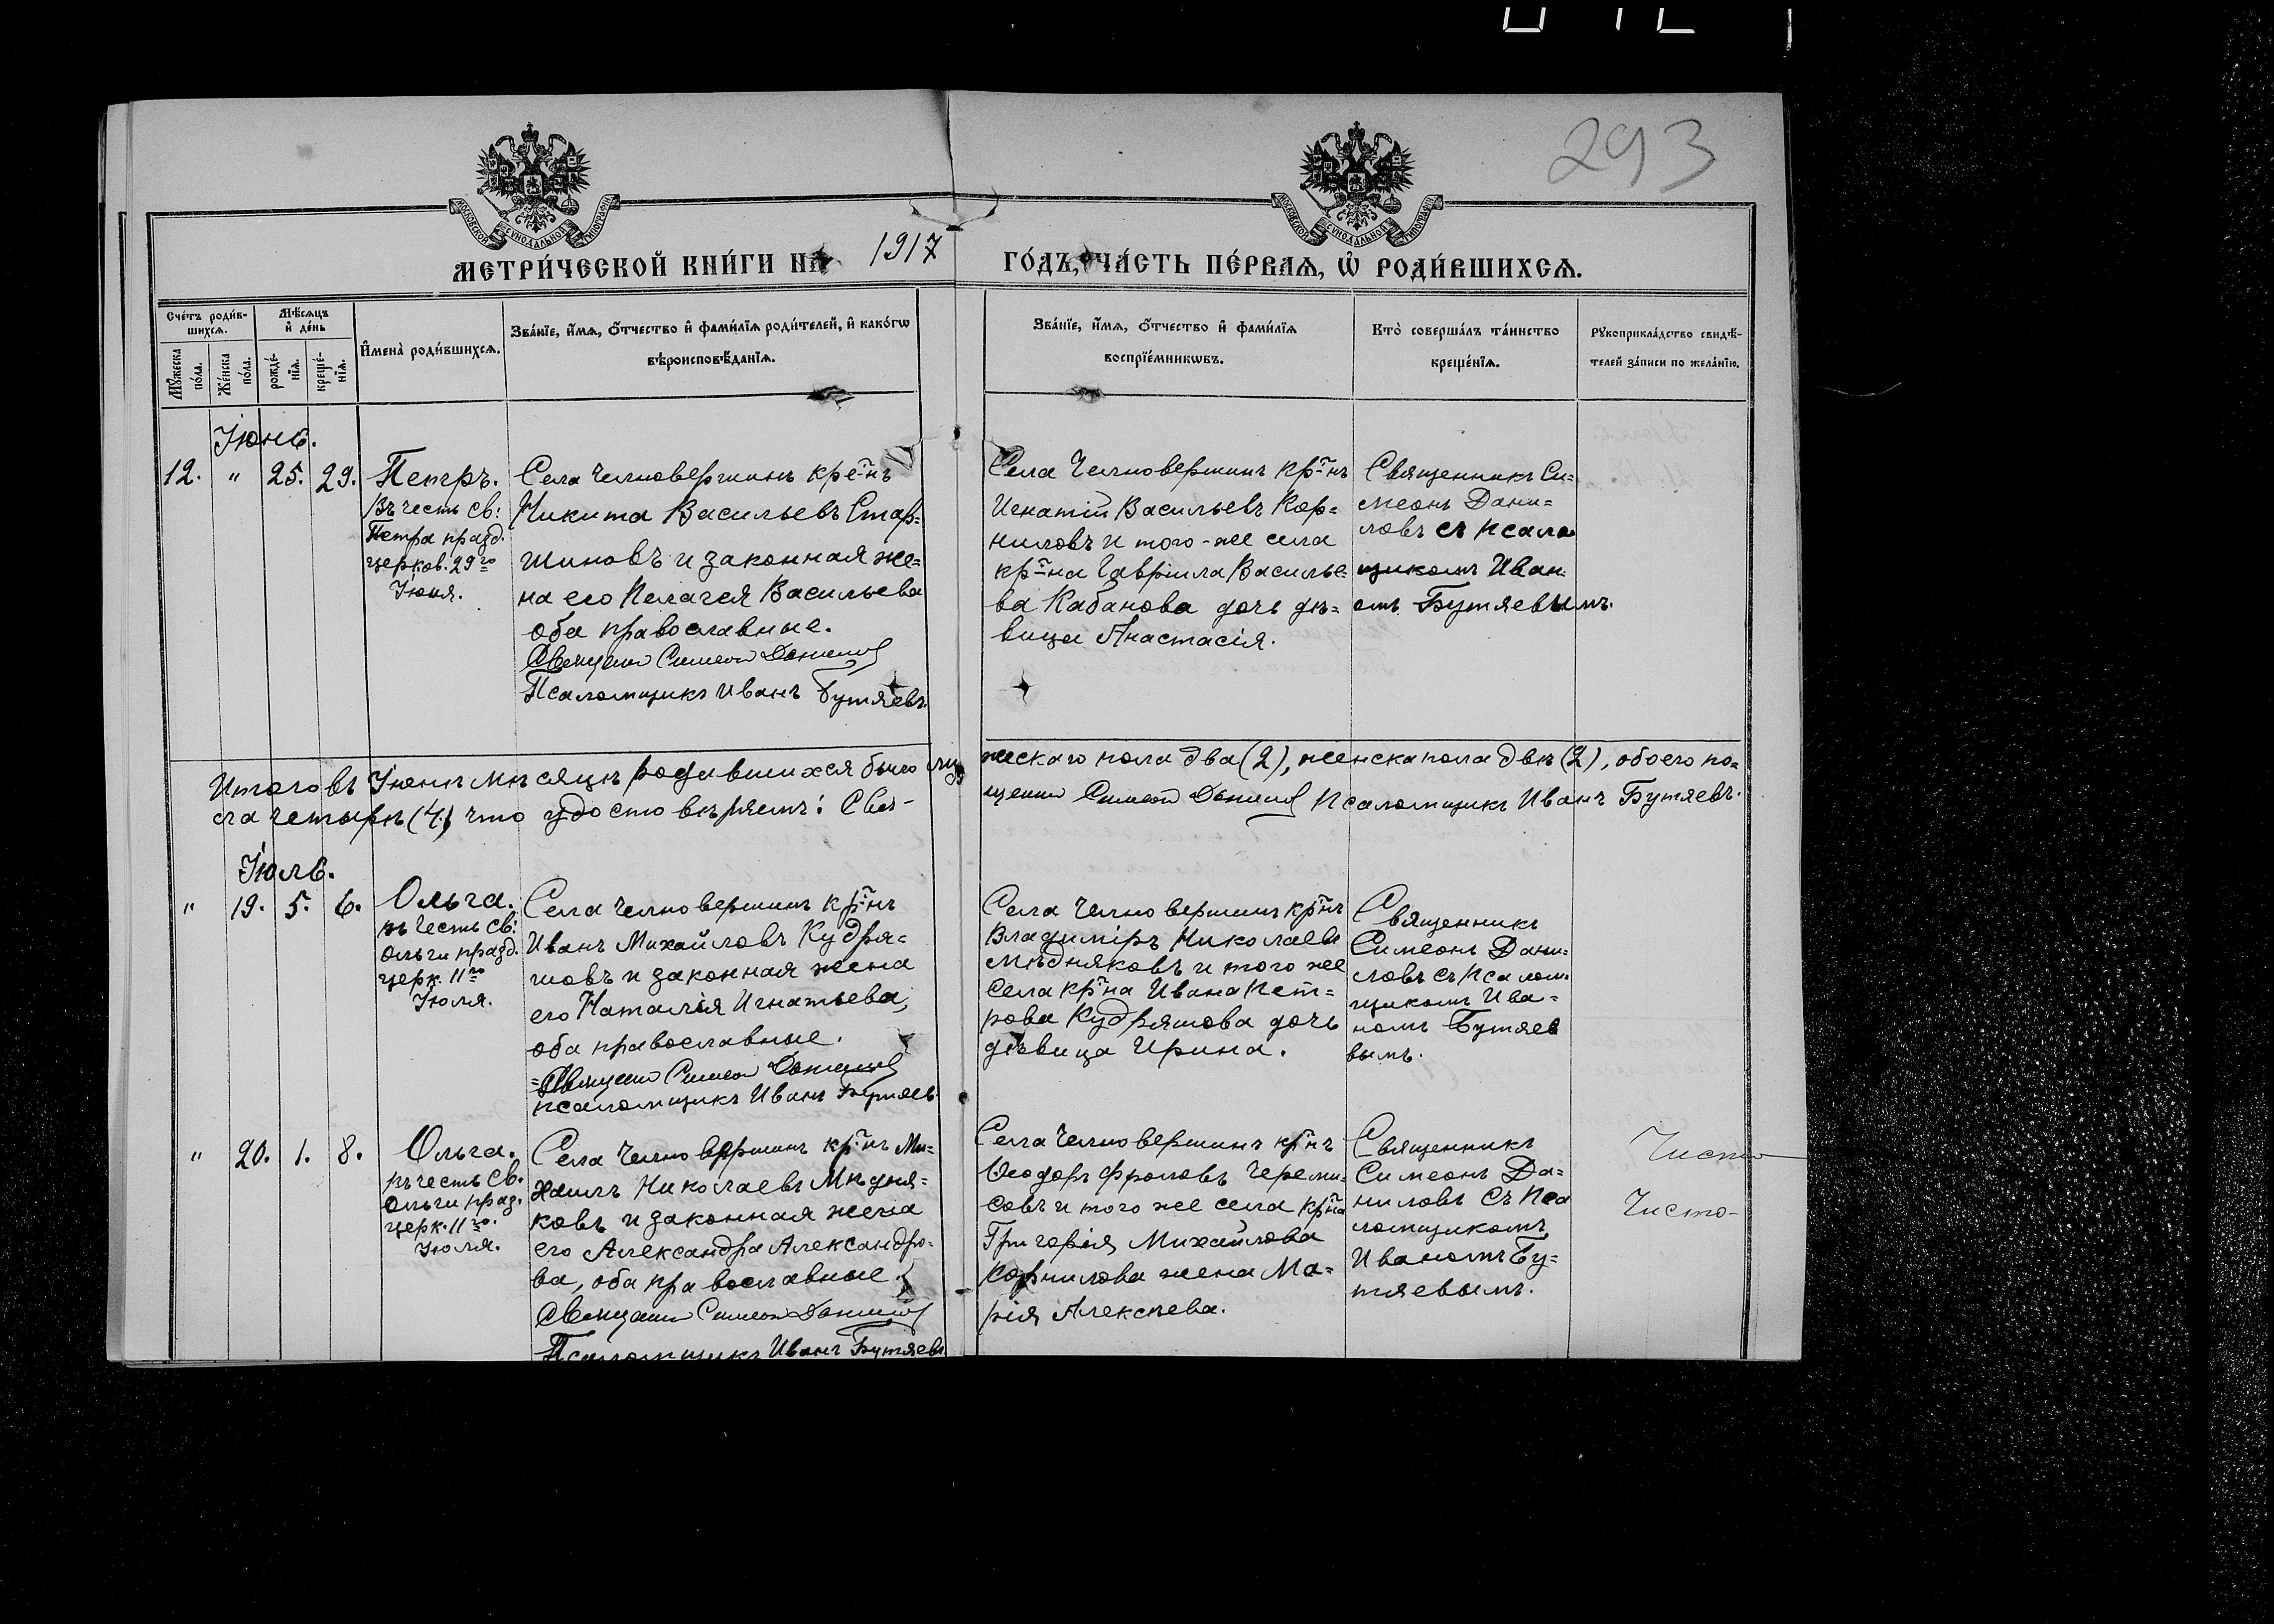 293
МОСКОВСКОЙ СУНОДАЛЬНОЙ ТИПОГРАФІИ
МОСКОВСКОЙ СУНОДАЛЬНОЙ ТИПОГРАФІИ
МЕТРИ́ЧЕСКОЙ КНИ́ГИ НА 1917 ГО́ДЪ, ЧА́СТЬ ПЕ́РВАѦ, Ѡ҆ РОДИ́ВШИХСѦ.
Сче́тъ роди́в-
шихсѧ.
Мꙋжеска по́ла.
Же́нска по́ла.
Мѣ́сѧцъ
и҆ де́нь
рожде́-
нїѧ.
креще́-
нїѧ.
И҆мена̀ роди́вшихсѧ.
Зва́нїе, и҆́мѧ, ѻ҆́тчество и҆ фами́лїѧ роди́телей, и҆ како́гѡ
вѣроисповѣ́данїѧ.
Зва́нїе, и҆́мѧ, ѻ҆́тчество и҆ фами́лїѧ
воспрїе́мникѡвъ.
Кто̀ соверша́лъ та́инство
креще́нїѧ.
Рꙋкоприкла́дство свидѣ́-
телей за́писи по жела́нїю.
Іюнь.
12. " 25. 29.
Петръ.
Въ честь св:
Петра празд.
церков. 29го
Іюня.
Села Челновершинъ кре-нъ
Никита Васильевъ Стар=
шиновъ и законная же=
на его Пелагея Васильева
оба православные.
Священ Симеон Данилов
Псаломщикъ Иванъ Бутяевъ
Села Челновершинъ кр-нъ
Игнатій Васильевъ Кор=
ниловъ и того-же села
кр-на Гавріила Василье-
ва Кабанова дочь дѣ=
вица Анастасія.
Священникъ Си=
меонъ Дани=
ловъ съ псалом
щикомъ Иван
омъ Бутяевымъ.
Итого въ Іюнѣ мѣсяцѣ родившихся было муж
жескаго пола два (2), женска пола двѣ (2), обоего по=
ла четыре (4) что удостовѣряемъ: Свя-
щенни Симеон Данилов Псаломщикъ Иванъ Бутяевъ.
Іюль.
" 19. 5. 6.
Ольга.
въ честь св:
Ольги празд.
церк. 11го
Іюля.
Села Челновершинъ кр-нъ
Иванъ Михайловъ Кудря=
шовъ и законная жена
его Наталія Игнатьева,
оба православные.
=Священ Симеон Данилов
псаломщикъ Иванъ Бутяевъ
Села Челновершинъ кр-нъ
Владиміръ Николаевъ
Мѣдняковъ и того же
села кр-на Ивана Пет=
рова Кудряшова дочь
дѣвица Ирина.
Священникъ
Симеонъ Дани=
ловъ съ псалом
щикомъ Ива=
номъ Бутяев
вымъ.
" 20. 1. 8.
Ольга.
въ честь св.
Ольги празд.
церк. 11го.
Іюля.
Села Челновершинъ кр-нъ Ми=
хаилъ Николаевъ Мѣдня=
ковъ и законная жена
его Александра Александро=
ва, оба православные.
Священ Симеон Данилов
Псаломщикъ Иванъ Бутяевъ
Села Челновершинъ кр-нъ
Ѳеодоръ Фроловъ Череми=
совъ и того же села кр-на
Григорія Михайлова
Корнилова жена Ма=
рія Алексѣева.
Священникъ
Симеонъ Да=
ниловъ съ пса
ломщикомъ
Иваномъ Бу=
тяевымъ.
Чисто
Чисто-